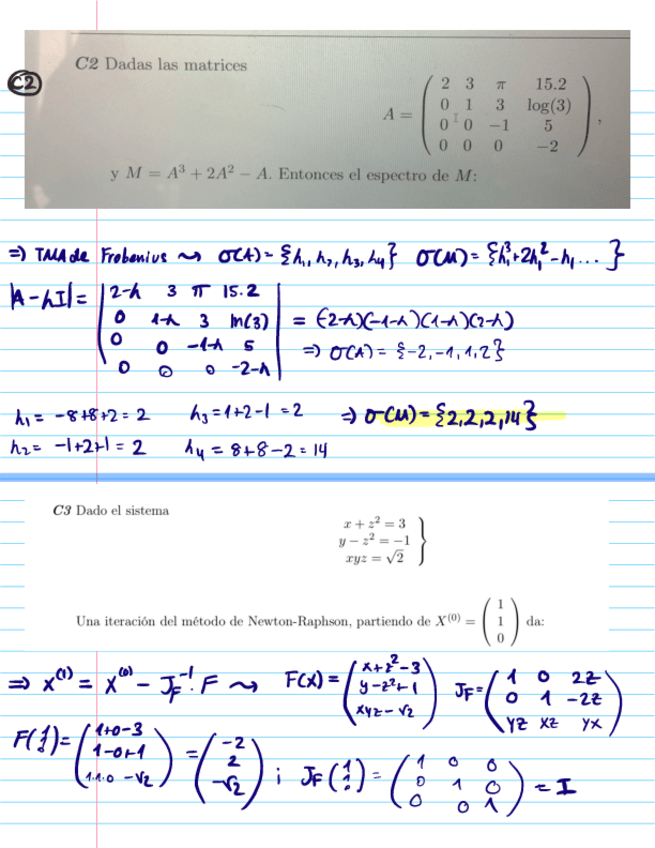 C2
C2 Dadas las matrices
A = ( 2 3 π 15.2
0 1 3 log(3)
0 0 −1 5
0 0 0 −2 ),
y M = A³ + 2A² − A. Entonces el espectro de M:
=) TMA de Frobenius ⇝ σ(A) = {λ₁, λ₂, λ₃, λ₄} σ(M) = {λ₁³+2λ₁²-λ₁ ... }
|A - λI| = | 2-λ 3 π 15.2
0 1-λ 3 ln(3)
0 0 -1-λ 5
0 0 0 -2-λ | = (-2-λ)(-1-λ)(1-λ)(2-λ)
=) σ(A) = {-2, -1, 1, 2}
λ₁ = -8+8+2 = 2 λ₃ = 1+2-1 = 2 =) σ(M) = {2, 2, 2, 14}
λ₂ = -1+2+1 = 2 λ₄ = 8+8-2 = 14
C3 Dado el sistema
x + z² = 3
y − z² = −1
xyz = √2 }
Una iteración del método de Newton-Raphson, partiendo de X⁽⁰⁾ = ( 1 1 0 ) da:
=) X⁽¹⁾ = X⁽⁰⁾ - J_F⁻¹ · F ⇝ F(X) = ( x+z²-3
y-z²+1
xyz-√2 ) J_F = ( 1 0 2z
0 1 -2z
yz xz yx )
F( 1 1 0 ) = ( 1+0-3
1-0+1
1·1·0 -√2 ) = ( -2
2
-√2 ) ; J_F( 1 1 0 ) = ( 1 0 0
0 1 0
0 0 1 ) = I